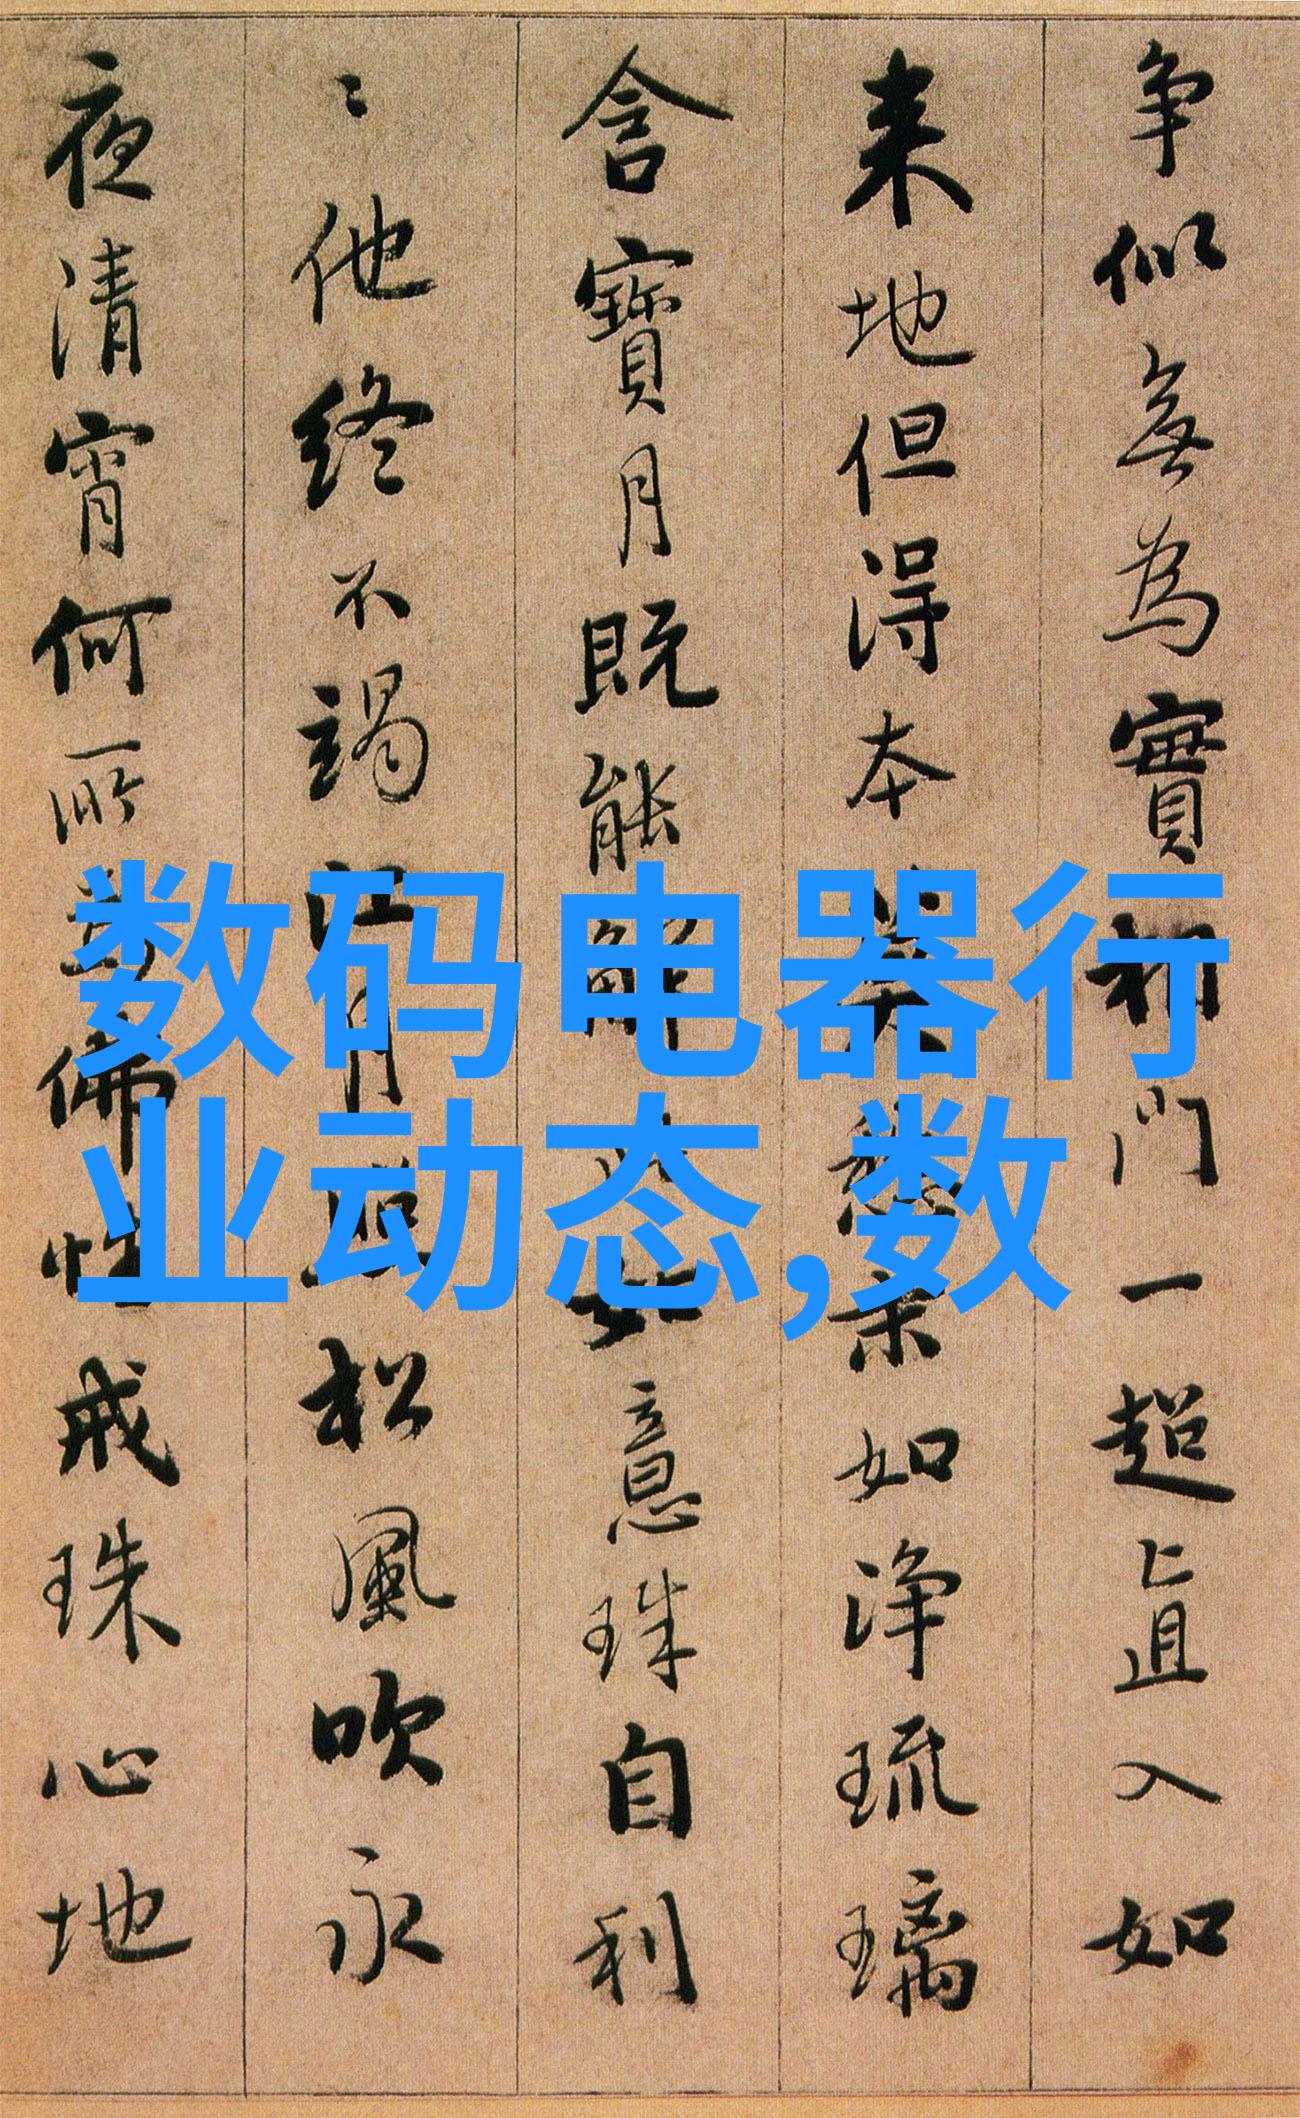 争似無為實相門一超直入如
来地但得本莫愁末如净琉璃
含寶月既能解此如意珠自利
〻他終不竭江月照松風吹永
夜清宵何所為佛性戒珠心地
数码电器行
业动态,数